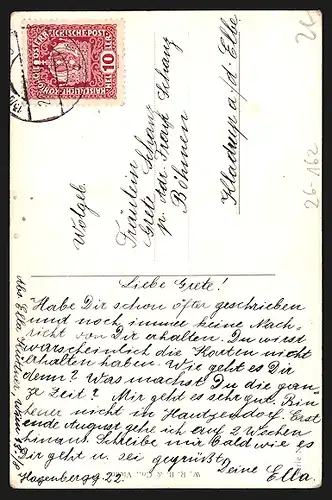 Wolgeb.
Fräulein
Grete Schanz
p. adr. Frank Schanz
Böhmen
Kladrup a/d. Elbe
26-162
KAISERLICHE KÖNIGLICHE ÖSTERREICHISCHE POST
HELLER 10 HELLER
Liebe Grete!
Habe Dir schon öfter geschrieben
und noch immer keine Nach-
richt von Dir erhalten. Du wirst
warscheinlich die Karten nicht
erhalten haben. Wie geht es Dir
denn? Was machst Du die gan-
ze Zeit? Mir geht es sehr gut. Bin
heuer nicht in Hautzendorf. Erst
ende August gehe ich auf 2 Wochen
hinaus. Schreibe mir bald wie es
Dir geht u. sei gegrüßt
Deine
Ella.
Hagenbergg 22.